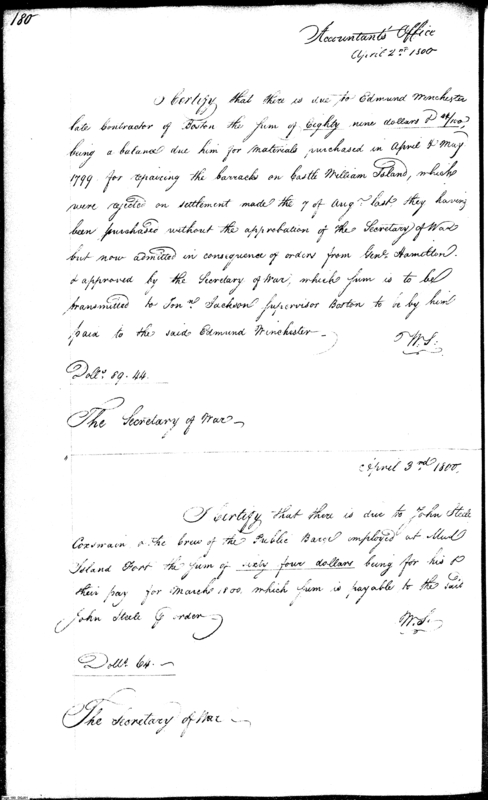 180
Accountants' Office
April 2nd 1800
I Certify that there is due to Edmund Winchester
late Contractor of Boston the sum of Eighty nine dollars & 44/100,
being a balance due him for materials purchased in April & May
1799 for repairing the barracks on Castle William Island, which
were rejected on settlement made the 7 of Augt last they having
been purchased without the approbation of the Secretary of War
but now admitted in consequence of orders from Genl. Hamilton
& approved by the Secretary of War, which sum is to be
transmitted to Jonn Jackson Supervisor Boston to be by him
paid to the said Edmund Winchester
W.S.
Dolls. 89.44.
The Secretary of War
April 3rd 1800.
I Certify that there is due to John Steele
Coxswain & the Crew of the Public Barge employed at Mud
Island Fort the sum of sixty four dollars being for his &
their pay for March 1800. which sum is payable to the said
John Steele or order
W.S.
Dolls. 64.
The Secretary of War